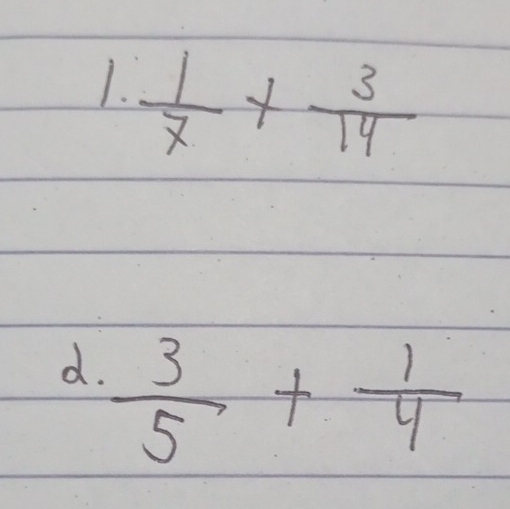 1. 1/7 + 3/14
2. 3/5 + 1/4